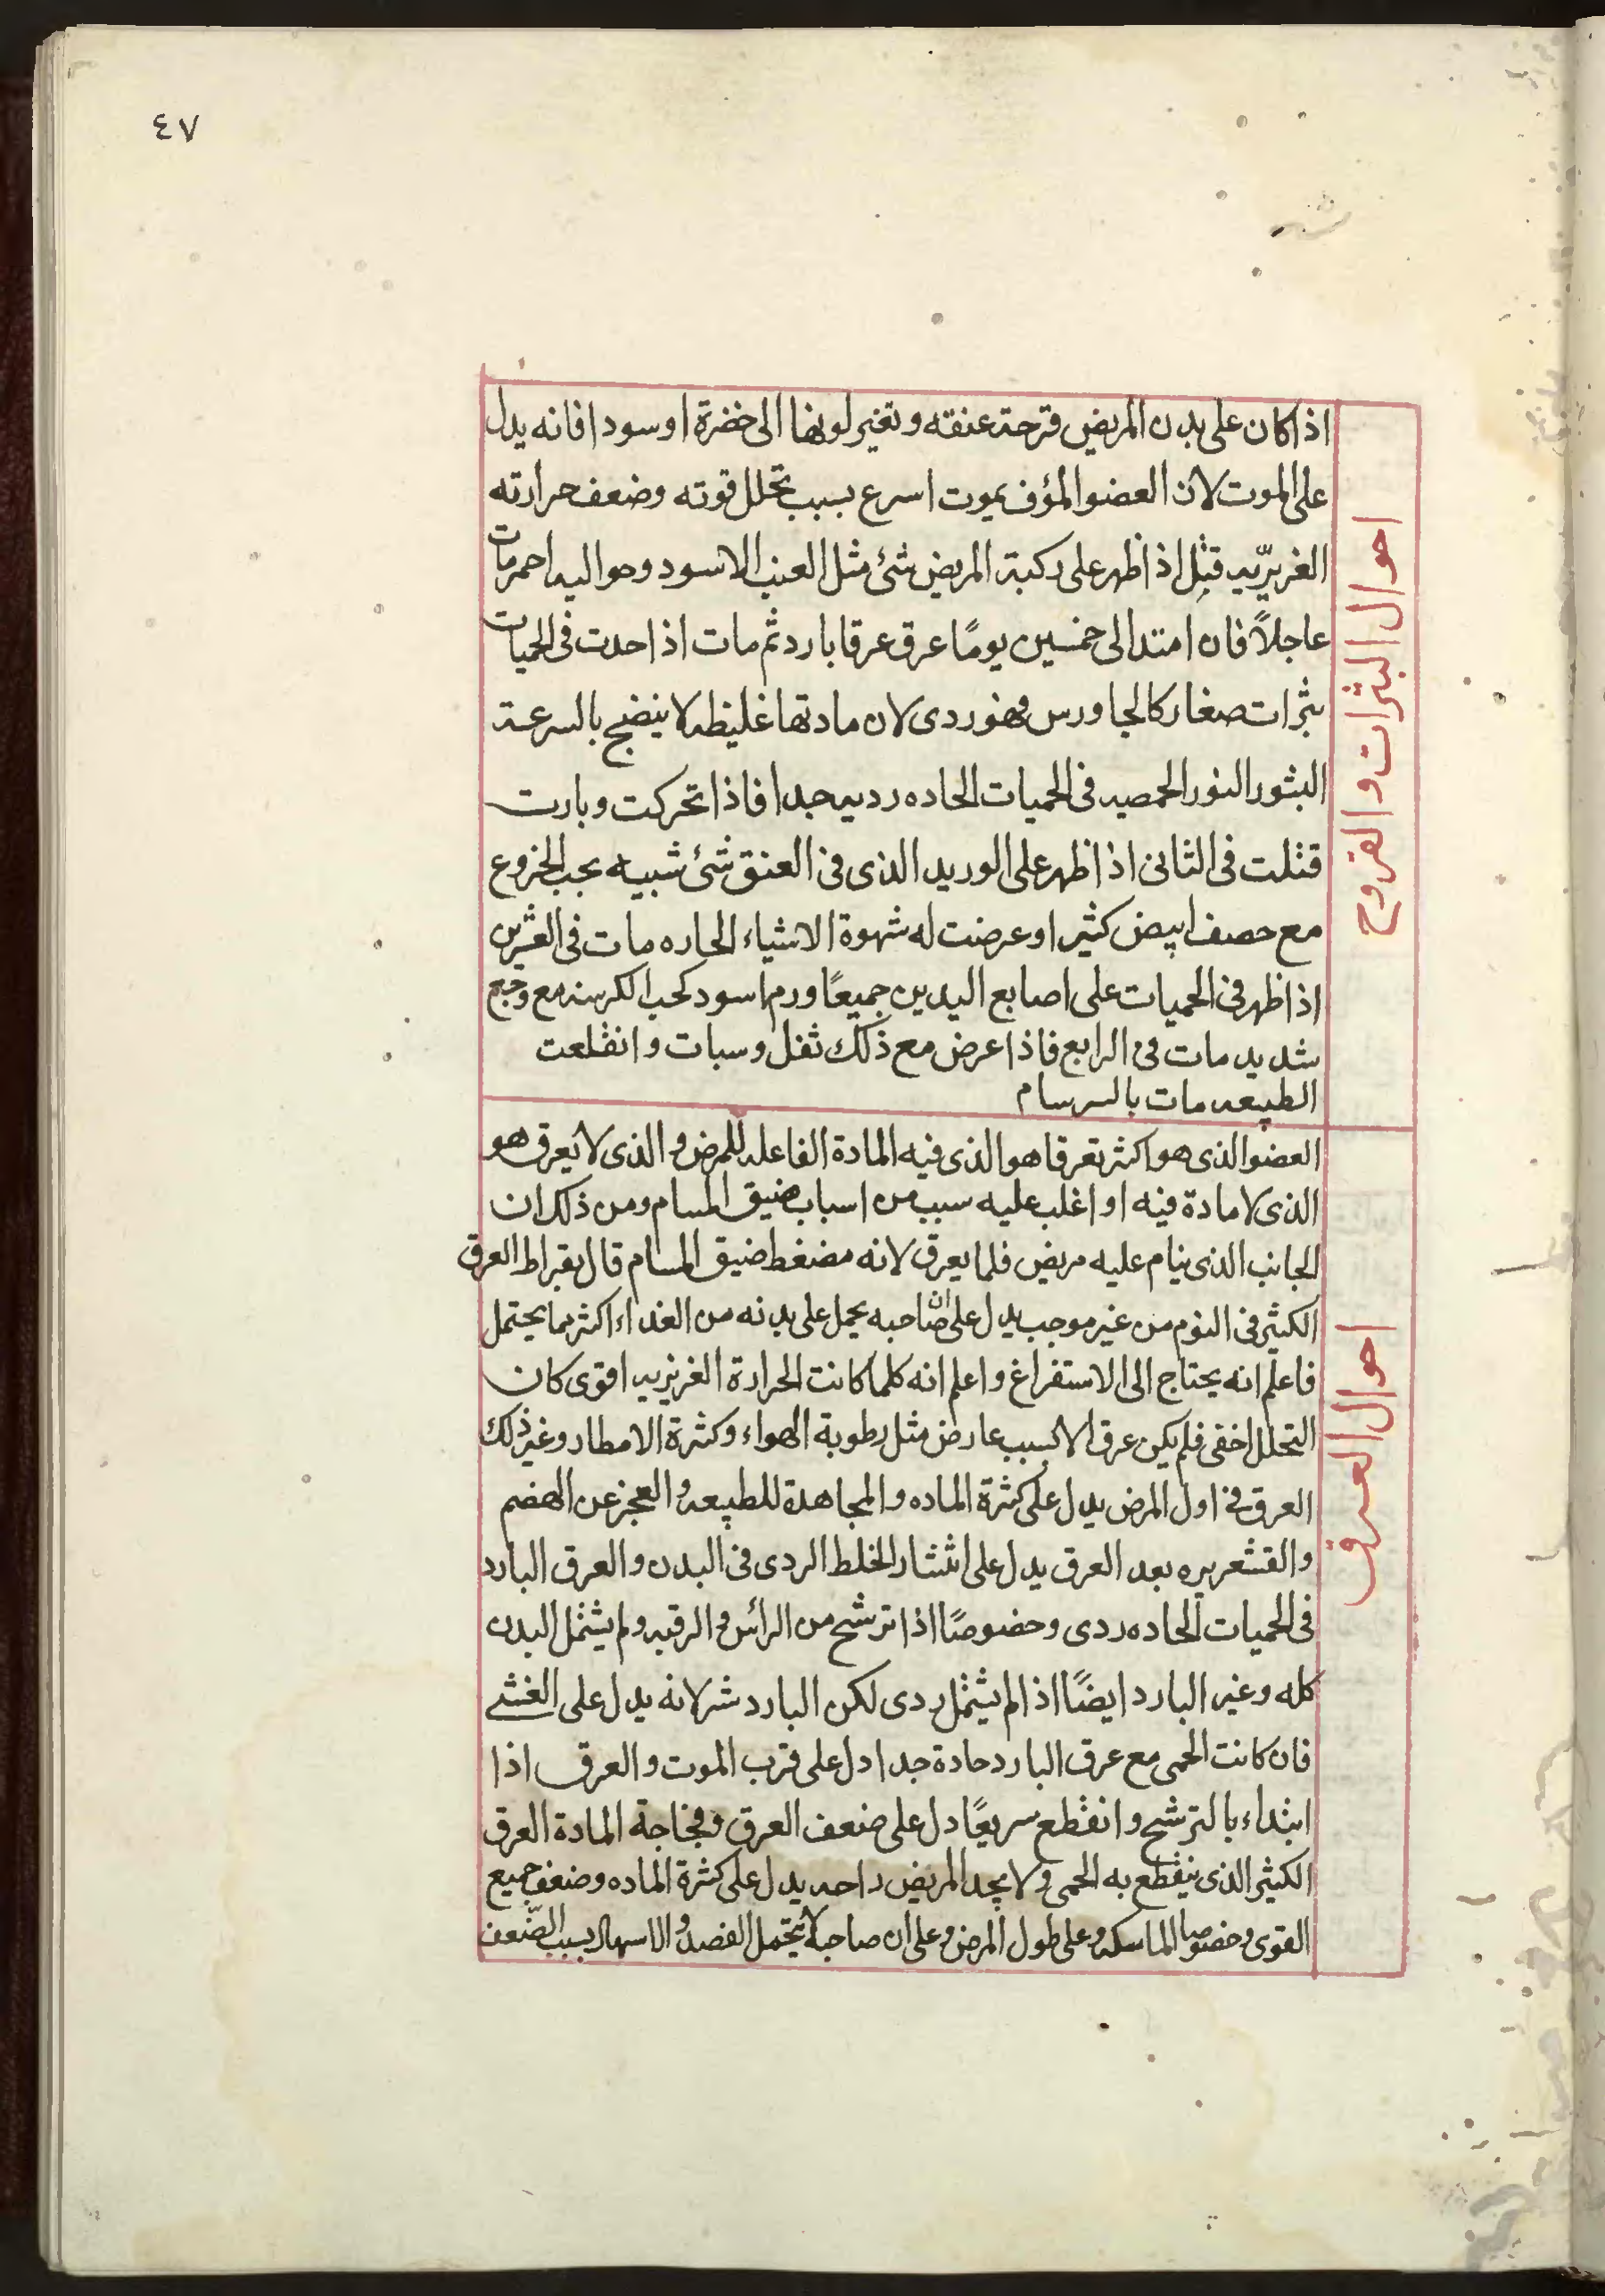 ٤٧
احوال البثرات والقروح
اذا كان على بدن المريض قرحة عنقه وتغير لونها الى خضرة اوسودا فانه يدل
على الموت لان العضو المؤف يموت اسرع بسبب تحلل قوته وضعف حرارته
الغريزيه قيل اذا ظهر على ركبة المريض شئ مثل العنب الاسود وحواليه احمر مات
عاجلاً فان امتد الى خمسين يومًا عرق عرقا بارد ثم مات اذا احدت فى الحميات
بثرات صغار كالجاورس فهو ردى لان مادتها غليظه لا ينضج بالسرعة
البثور النور الحمصيه فى الحميات الحاده رديه جدا فاذا تحركت وبارت
قتلت فى الثانى اذا ظهر على الوريد الذى فى العنق شئ شبيه بحب الخروع
مع حصف ابيض كثير اوعرضت له شهوة الاشياء الحاره مات فى العشرين
اذا ظهر فى الحميات على اصابع اليدين جميعًا ورم اسود كحب الكرسنه مع وجع
شديد مات فى الرابع فاذا عرض مع ذلك ثقل وسبات وانقلعت
الطبيعه مات بالسرسام
احوال العرق
العضو الذى هو اكثر تعرقا هو الذى فيه المادة الفاعله للمرض والذى لا يعرق هو
الذى لا مادة فيه او اغلب عليه سبب من اسباب ضيق المسام ومن ذلك ان
الجانب الذى ينام عليه مريض قلما يعرق لانه مضغط ضيق المسام قال بقراط العرق
الكثير فى النوم من غير موجب يدل على ان صاحبه يحمل على بدنه من الغداء اكثر مما يحتمل
فاعلم انه يحتاج الى الاستفراغ واعلم انه كلما كانت الحرارة الغريزيه اقوى كان
التحلل اخفى فلم يكن عرق الا بسبب عارض مثل رطوبة الهواء وكثرة الامطار وغير ذلك
العرق فى اول المرض يدل على كثرة الماده والمجاهدة للطبيعه والعجز عن الهضم
والقشعريره بعد العرق يدل على انتشار الخلط الردى فى البدن والعرق البارد
فى الحميات الحاده ردى وخصوصًا اذا ترشح من الرأس والرقبه ولم يشتمل البدن
كله وغير البارد ايضًا اذا لم يشتمل ردى لكن البارد شر لانه يدل على الغشى
فان كانت الحمى مع عرق البارد حادة جدا دل على قرب الموت والعرق اذا
ابتداء بالترشح وانقطع سريعًا دل على ضعف العرق وفجاجة المادة العرق
الكثير الذى ينقطع به الحمى ولا يجد المريض راحه يدل على كثرة الماده وضعف جميع
القوى وخصوصا الماسكه وعلى طول المرض وعلى ان صاحبه لا يحتمل الفصد والاسهال بسبب الضّعف